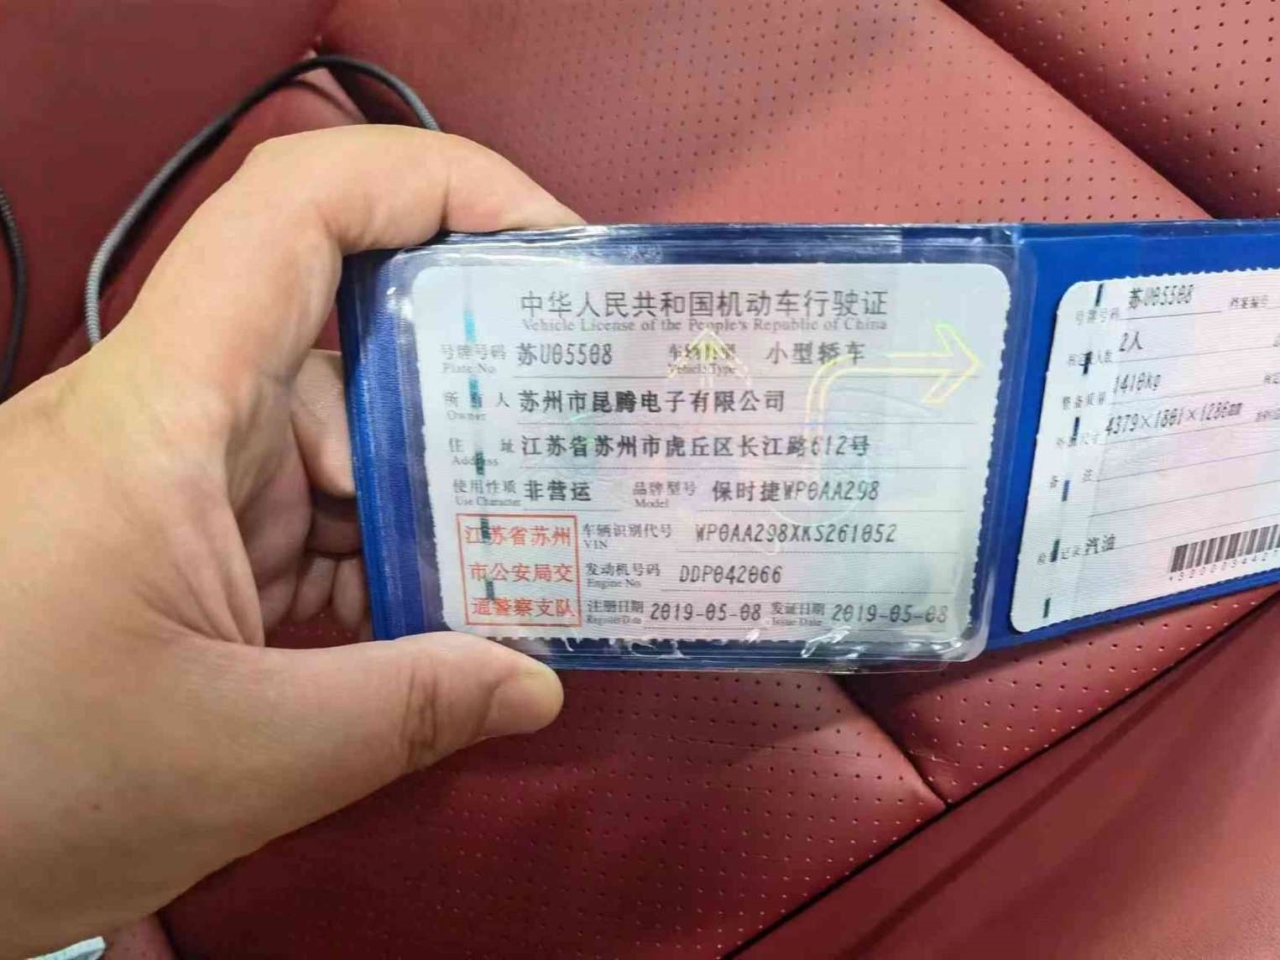 中华人民共和国机动车行驶证
Vehicle License of the People's Republic of China
号牌号码 苏U05508 车辆类型 小型轿车
Plate No. Vehicle Type
所有人 苏州市昆腾电子有限公司
Owner
住址 江苏省苏州市虎丘区长江路612号
Address
使用性质 非营运 品牌型号 保时捷WP0AA298
Use Character Model
江苏省苏州市公安局交通警察支队
车辆识别代号 WP0AA298XKS261052
VIN
发动机号码 DDP042066
Engine No.
注册日期 2019-05-08 发证日期 2019-05-08
Register Date Issue Date
号牌号码 苏U05508 档案编号
核定载人数 2人
整备质量 1410kg
外廓尺寸 4379×1801×1286mm
备注
检验记录 汽油